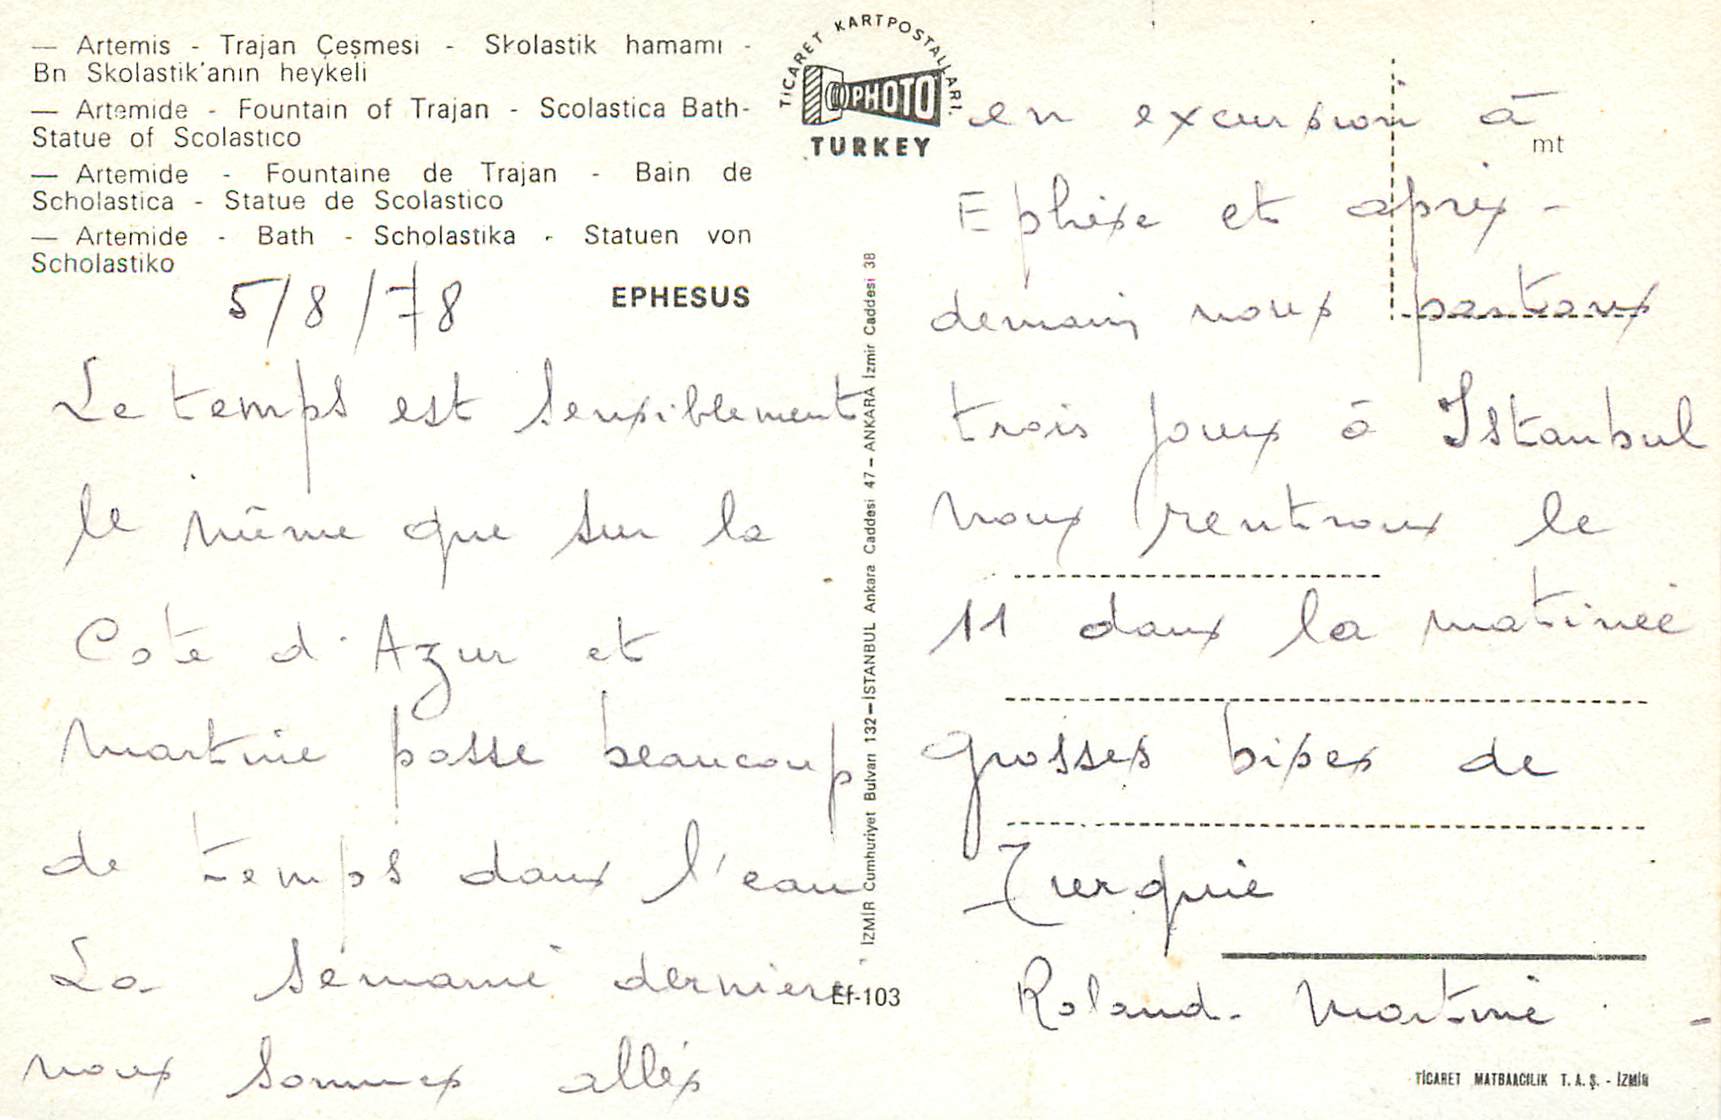 — Artemis - Trajan Çeşmesi - Skolastik hamamı -
Bn Skolastik'anın heykeli
— Artemide - Fountain of Trajan - Scolastica Bath-
Statue of Scolastico
— Artemide - Fountaine de Trajan - Bain de
Scholastica - Statue de Scolastico
— Artemide - Bath - Scholastika - Statuen von
Scholastiko
EPHESUS
5/8/78
Le temps est sensiblement
le même que sur la
Cote d'Azur et
Martine passe beaucoup
de temps dans l'eau
La semaine derniere
nous sommes allés
Ef-103
İZMİR Cumhuriyet Bulvarı 132—İSTANBUL Ankara Caddesi 47—ANKARA İzmir Caddesi 38
TİCARET KARTPOSTALLARI
PHOTO
TURKEY
mt
en excursion à
Ephèse et après-
demain nous partons
trois jours à Istanbul
Nous rentrons le
11 dans la matinée
grosses bises de
Turquie
Roland - Martine
TİCARET MATBAACILIK T. A. Ş. - İZMİR